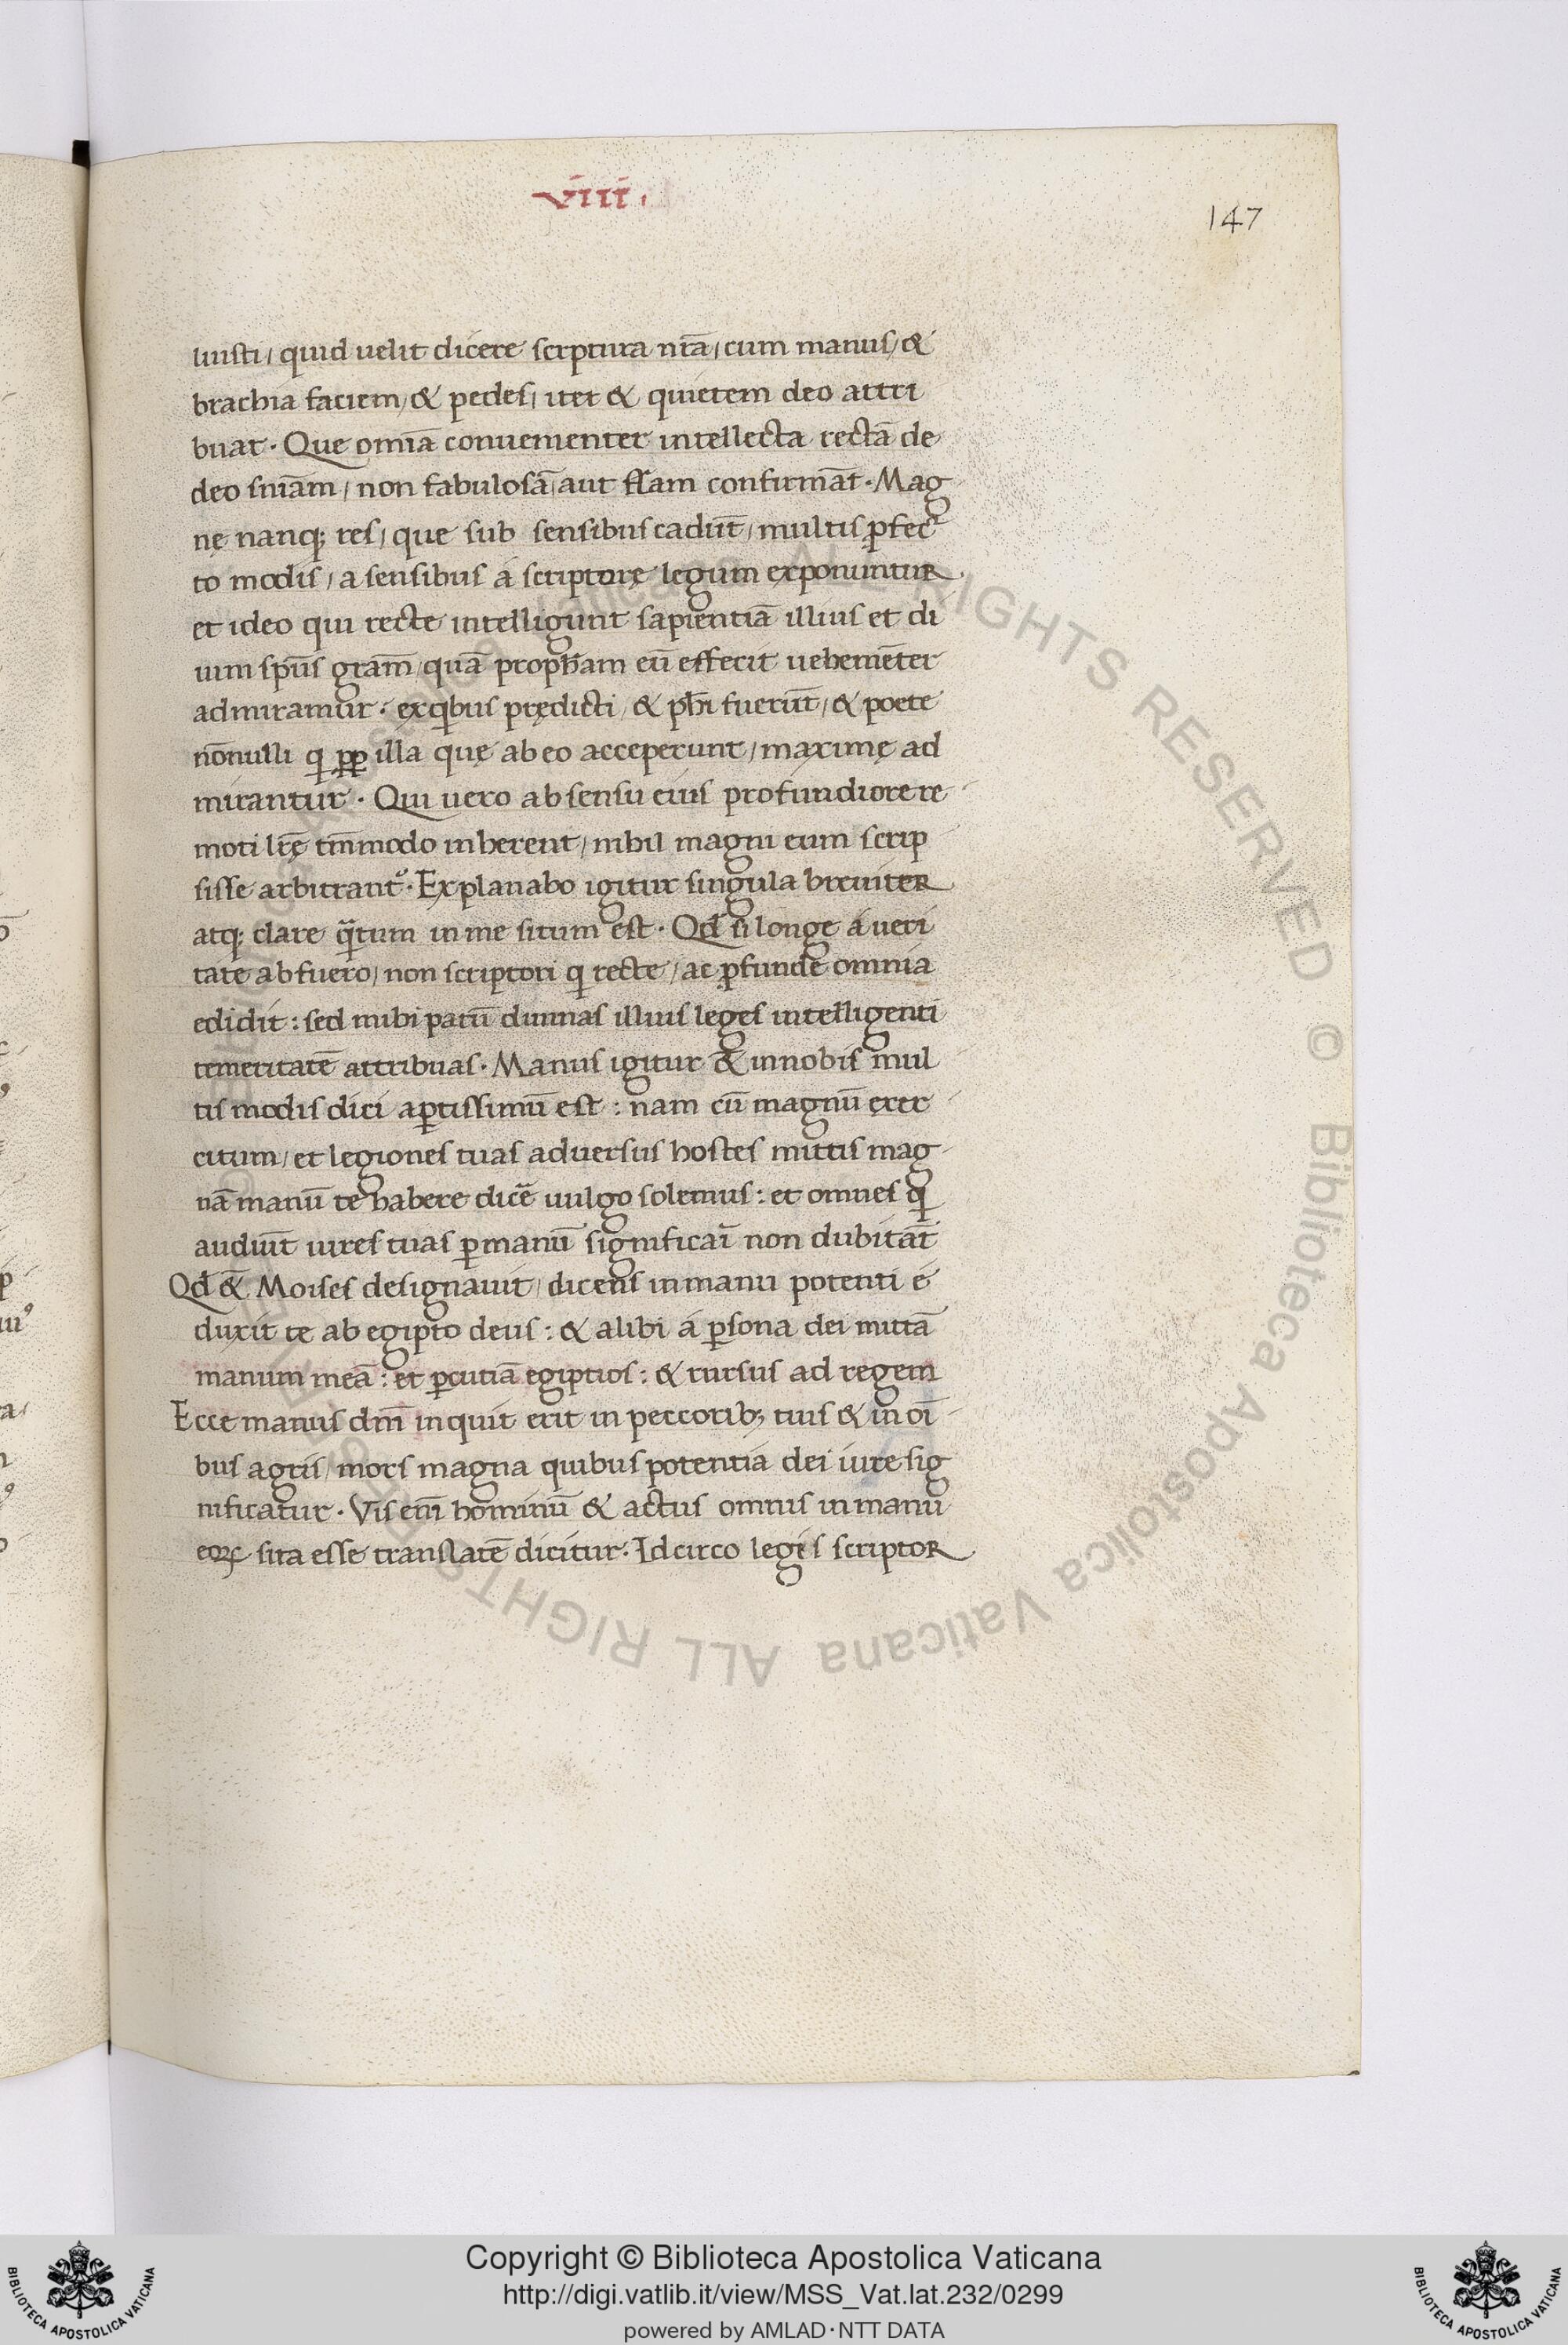 VIII.
147
luisti/ quid uelit dicere scrptura nr̄a/ cum manus/ &
brachia faciem/ & pedes/ iter & quietem deo attri
buat. Que omīa conuenienter intellecta rectā de
deo sn̄iam/ non fabulosā/ aut fl̄am confirmāt. Mag
nę nanq; res/ que sub sensibus cadūt/ multis ꝑfec
to modis/ a sensibus á scriptorę legum exponuntur
et ideo qui recte intelligunt sapientiā illius et di
uini sp̄us gr̄am/ quā proph̄am eū effecit uehemēter
admiramur. ex qibus prędicti/ & ph̄i fuerūt/ & poete
nōnulli qi ꝓp illa quę ab eo acceperunt/ maximę ad
mirantur. Qui uero ab sensu eius profundiore re
moti lr̄ę tm̄modo inherent/ nihil magni eum scrip
sisse arbitrant᷑. Explanabo igitur singula breuiter
atq; clare qͣtum in me situm est. Qd̄ si longe á ueri
tate abfuero/ non scriptori qi recte/ ac ꝓfunde omnia
edidit: sed mihi parū diuinas illius leges intelligenti
temeritatē attribuas. Manus igitur & in nobis mul
tis modis dici aꝑtissimū est: nam cū magnū exer
citum/ et legiones tuas aduersus hostes mittis mag
nā manū te habere dicē uulgo solemus: et omnes qi
audiūt uires tuas ꝑ manū significarī non dubitāt
Qd̄ & Moises designauit/ dicens in manu potenti é
duxit te ab egipto deus: & alibi á ꝑsona dei mittā
manum meā: et ꝑcutiā egiptios: & rursus ad regem
Ecce manus dn̄i inquit erit in peccorib; tuis & in oī
bus agris/ mors magna quibus potentia dei iure sig
nificatur. Vis enī hominū & actus omnis in manu
eoꝝ sita esse translatē dicitur. Idcirco legis scriptor
© Biblioteca Apostolica Vaticana ALL RIGHTS RESERVED
Copyright © Biblioteca Apostolica Vaticana
http://digi.vatlib.it/view/MSS_Vat.lat.232/0299
powered by AMLAD·NTT DATA
BIBLIOTECA APOSTOLICA VATICANA
BIBLIOTECA APOSTOLICA VATICANA